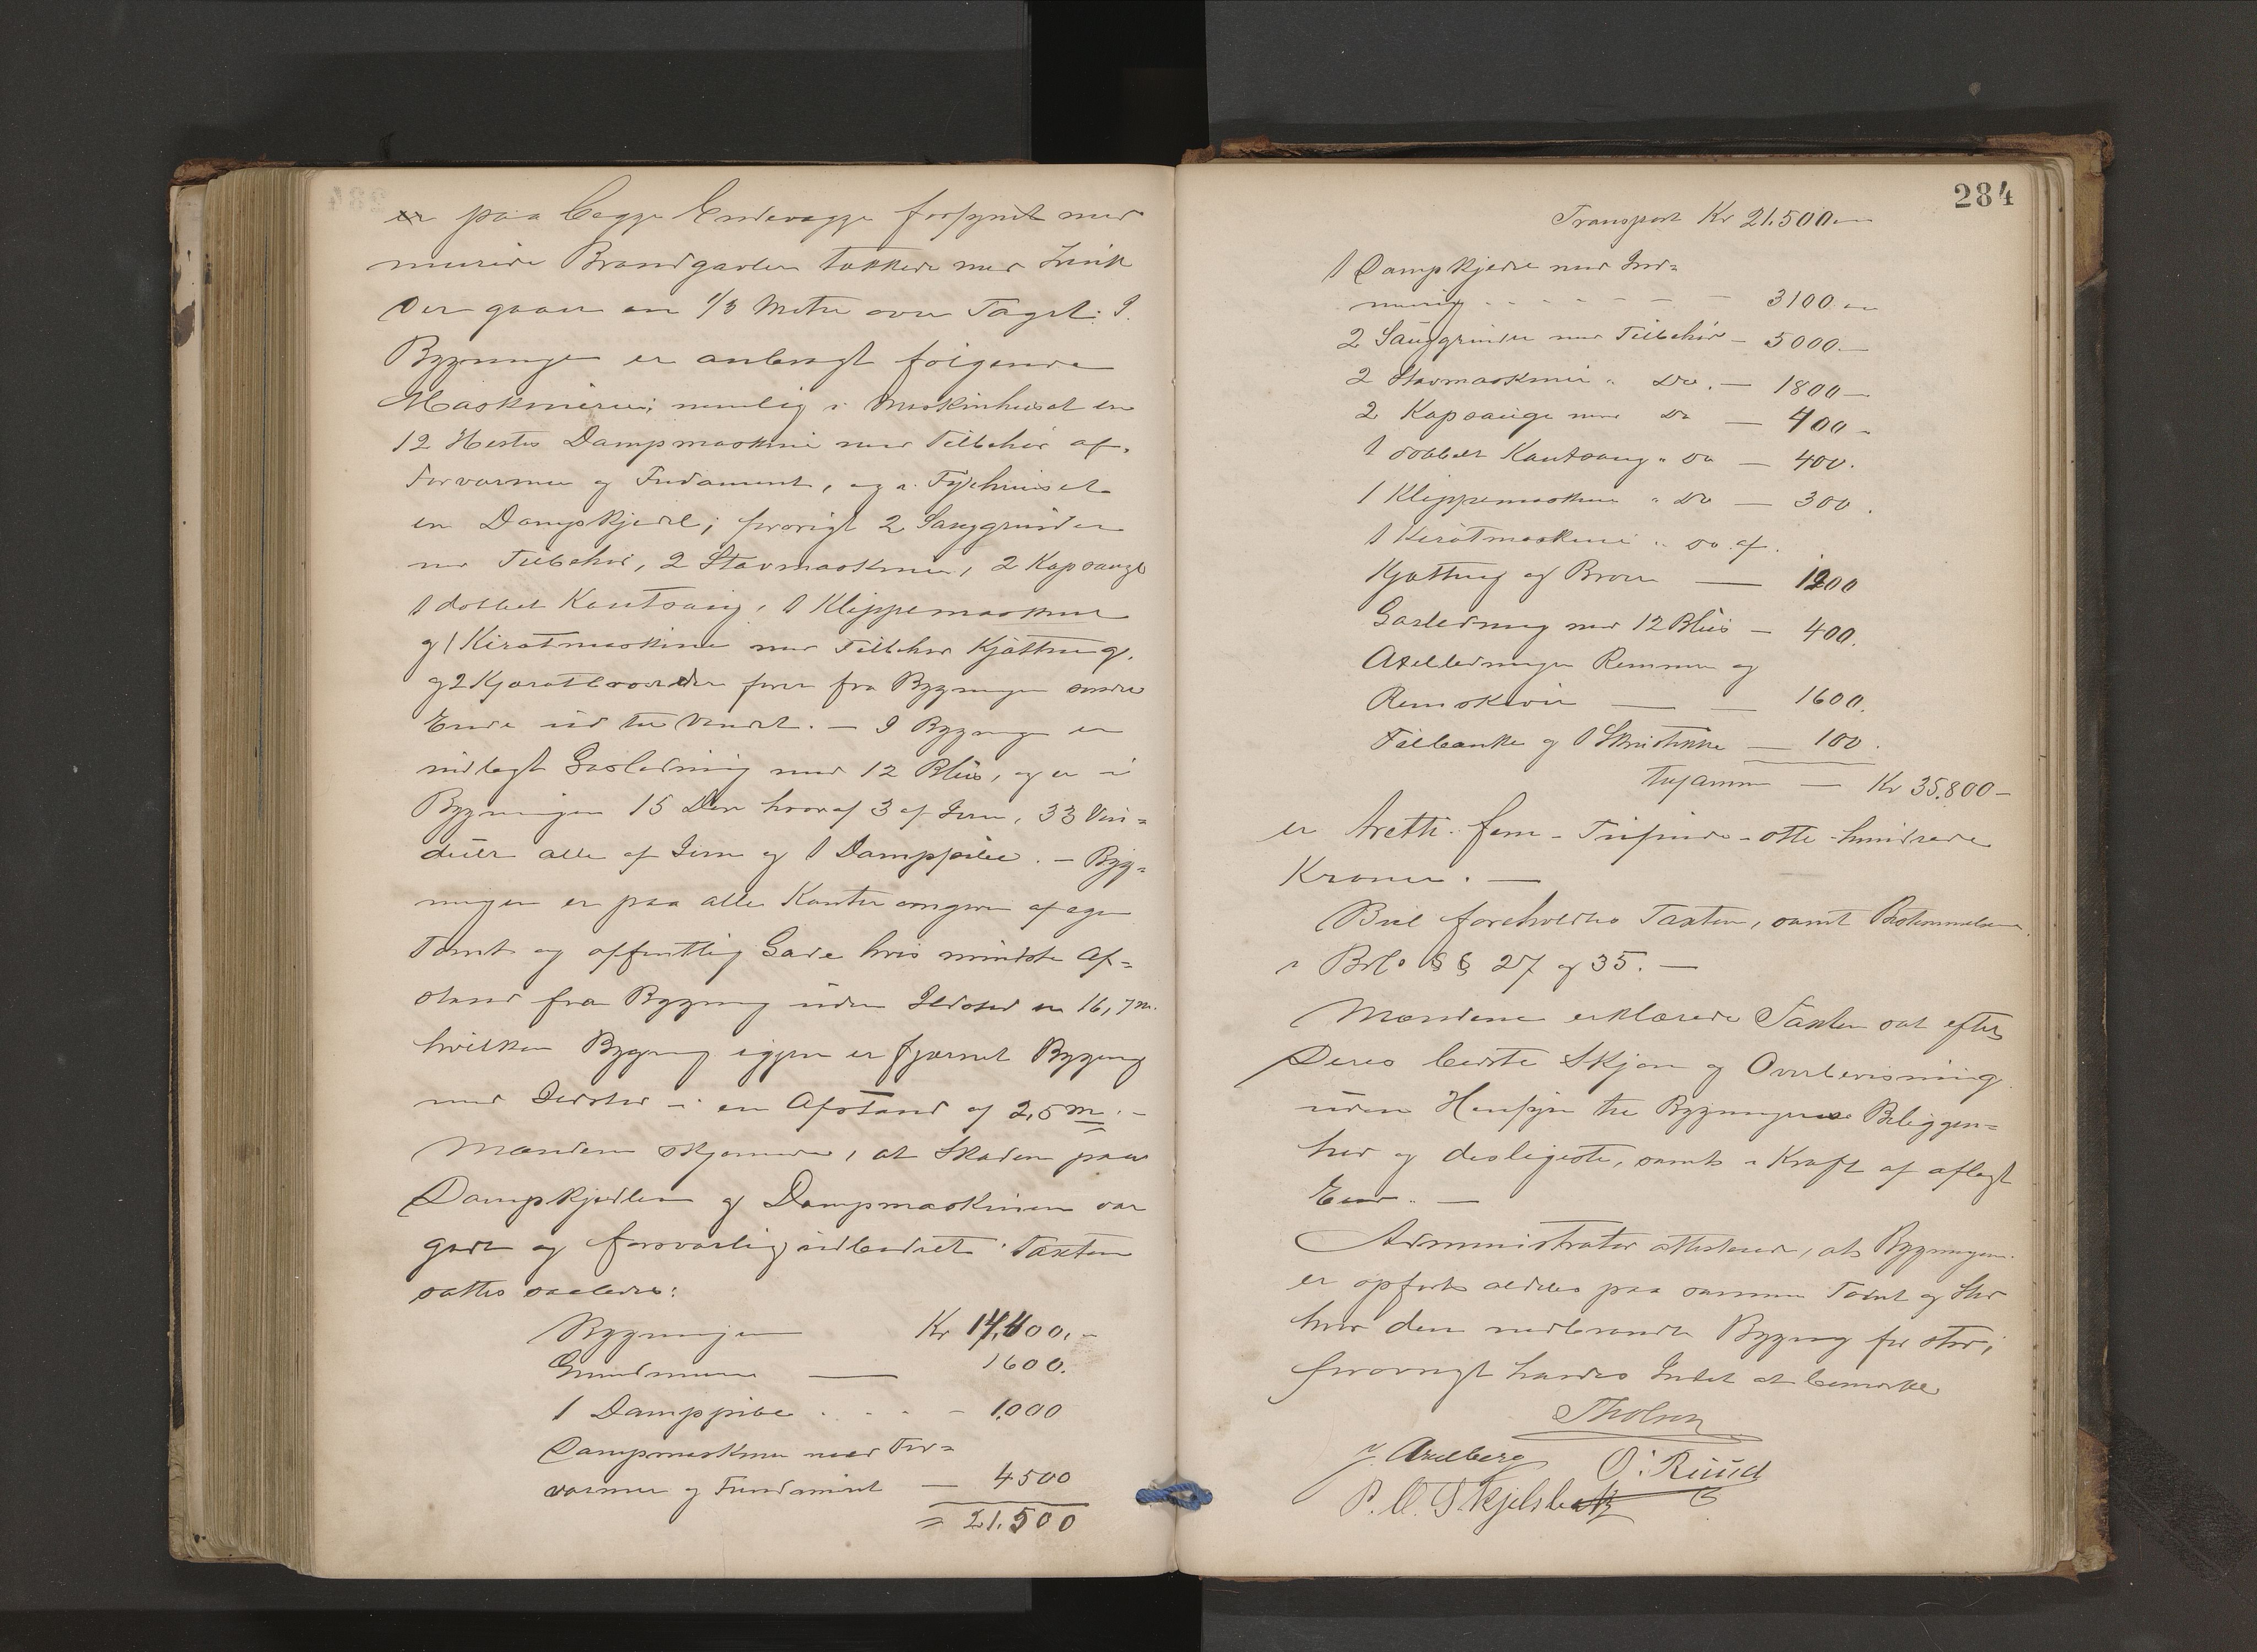 er paa begge Endevægge forsynet med
murede Brandgavler tækkede med Zink
der gaaer en 1/3 Meter over Taget. I
Bygningen er anbragt følgende
Maskinerier; nemlig i Maskinhuset en
12 Hestes Dampmaskine med Tilbehør af
Forvarmer og Fudament, og i Fyrhuset
en Dampkjedel; forøvrigt 2 Saugrinder
med Tilbehør, 2 Stavmaskiner, 2 Kapsauge
1 dobbelt Kantsaug, 1 Klippemaskine
og 1 Kjerätmaskine med Tilbehør Kjætting.
og 2 Kjerat fører fra Bygningen nedre
Ende ud til Vandet. – I Bygningen er
indlagt Gasledning med 12 Blus, og er i
Bygningen 15 Døre hvoraf 3 af Jern, 33 Vin=
duer alle af Jern og 1 Damppibe. – Byg=
ningen er paa alle Kanter omgiven af egen
Tomt og offentlig Gade hvis mindste Af=
stand fra Bygning uden Ildsted er 16,7 m.
hvilken Bygning igjen er fjærnet Bygning
med Ildsted i en Afstand af 2,5 m. –
Mændene skjønnede, at Skaden paa
Dampkjedlen og Dampmaskinen var
godt og forsvarlig udbedret. Taxten
sattes saaledes:
Bygningen Kr 14,400. –
Grundmuren — 1600.
1 Damppibe . . . – 1000
Dampmaskine med For=
varmer og Fundament — 4500
= 21.500
284
Transport Kr 21.500 —
1 Dampkjedel med Ind=
muring - - - - - 3100 —
2 Saugrinder med Tilbehør – 5000 —
2 Stavmaskiner " Do. — 1800 —
2 Kapsauge med Do — 400 –
1 dobbelt Kantsaug " Do — 400.
1 Klippemaskine " Do — 300.
1 Kjerätmaskine " Do af
Kjætting og Broer — 1200
Gasledning med 12 Blus — 400.
Axelledninger Remmer og
Remskiver — — 1600.
Filbænke og 1 Skruestikke — 100.
Tilsammen — Kr 35.800 –
er tretti-fem-Tusinde-otte-hundrede
Kroner. —
Bilel foreholdtes Taxten, samt Bestemmelserne
i Brl. §§ 27 og 35. —
Mændene erklærede Taxten sat efter
Deres bedste Skjøn og Overbevisning
uden Hensyn til Bygningernes Beliggen=
hed og desligeste, samt i Kraft af aflagt
Eed. —
Administrator attesterede, at Bygningen
er opført aldeles paa samme Tomt og Sted
hvor den nedbrændte Bygning før stod;
forøvrigt havdes Intet at bemærke
J. Axelberg O. Ruud
P. O. Skjelsbæk